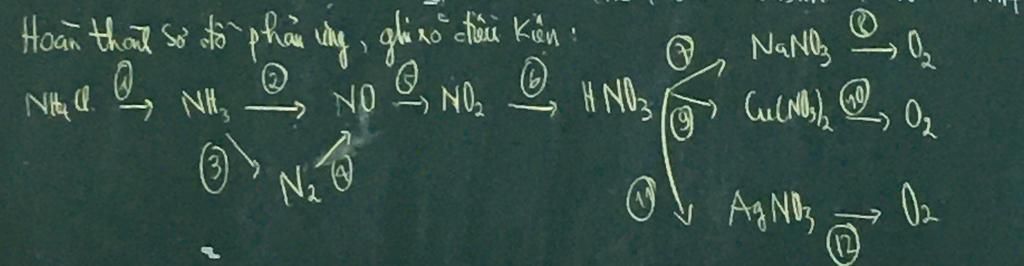 Hoàn thành sơ đồ phản ứng, ghi rõ điều kiện:
NH4Cl (1) → NH3 (2) → NO (5) → NO2 (6) → HNO3 (7) NaNO3 (8) → O2
(9) Cu(NO3)2 (10) → O2
(3) N2 (4)
(11) AgNO3 (12) → O2